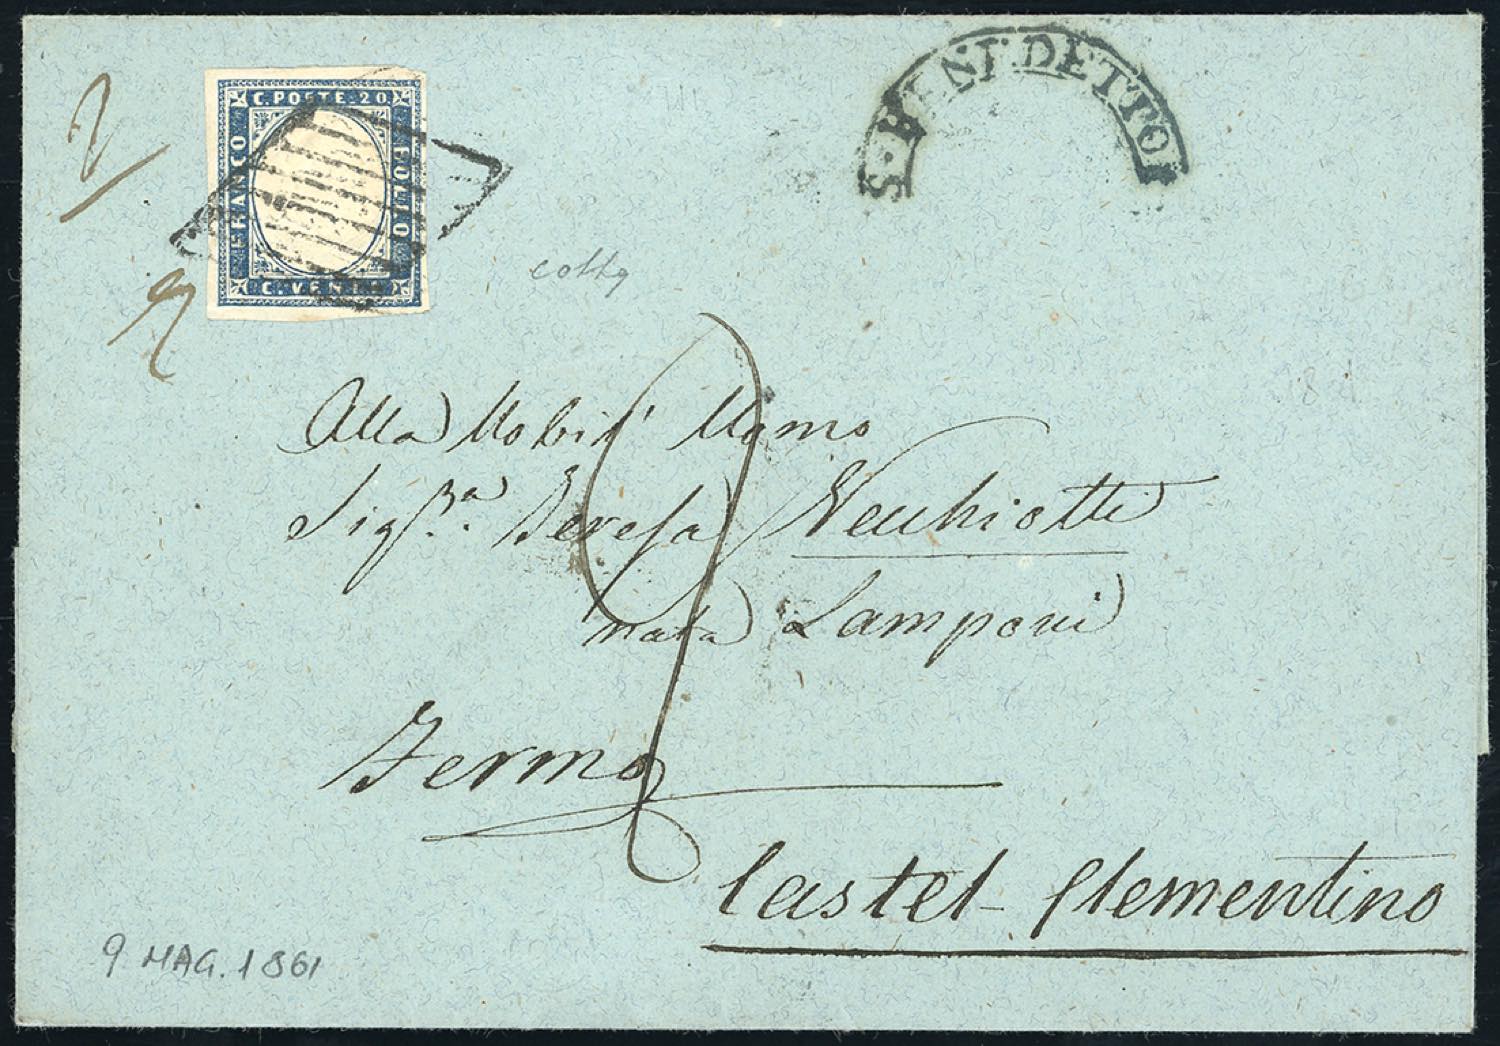 C. POSTE. 20
FRANCO
BOLLO
C. VENTI
S. BENEDETTO
2
Alla Nobil' Uomo
Sig.ra Teresa Vecchiotti
nata Lamponi
Fermo
Castel Clementino
9 MAG. 1861